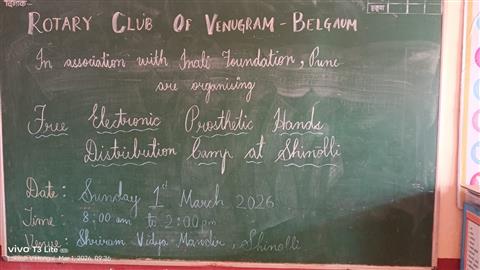 दिनांक
ROTARY CLUB OF VENUGRAM - BELGAUM
In association with Inali Foundation, Pune
are organising
Free Electronic Prosthetic Hands
Distribution Camp at Shinolli
Date: Sunday 1st March 2026
Time: 8:00 am to 2:00 pm
Venue: Shriram Vidya Mandir, Shinolli
vivo T3 Lite
Mar 1, 2026, 09:26